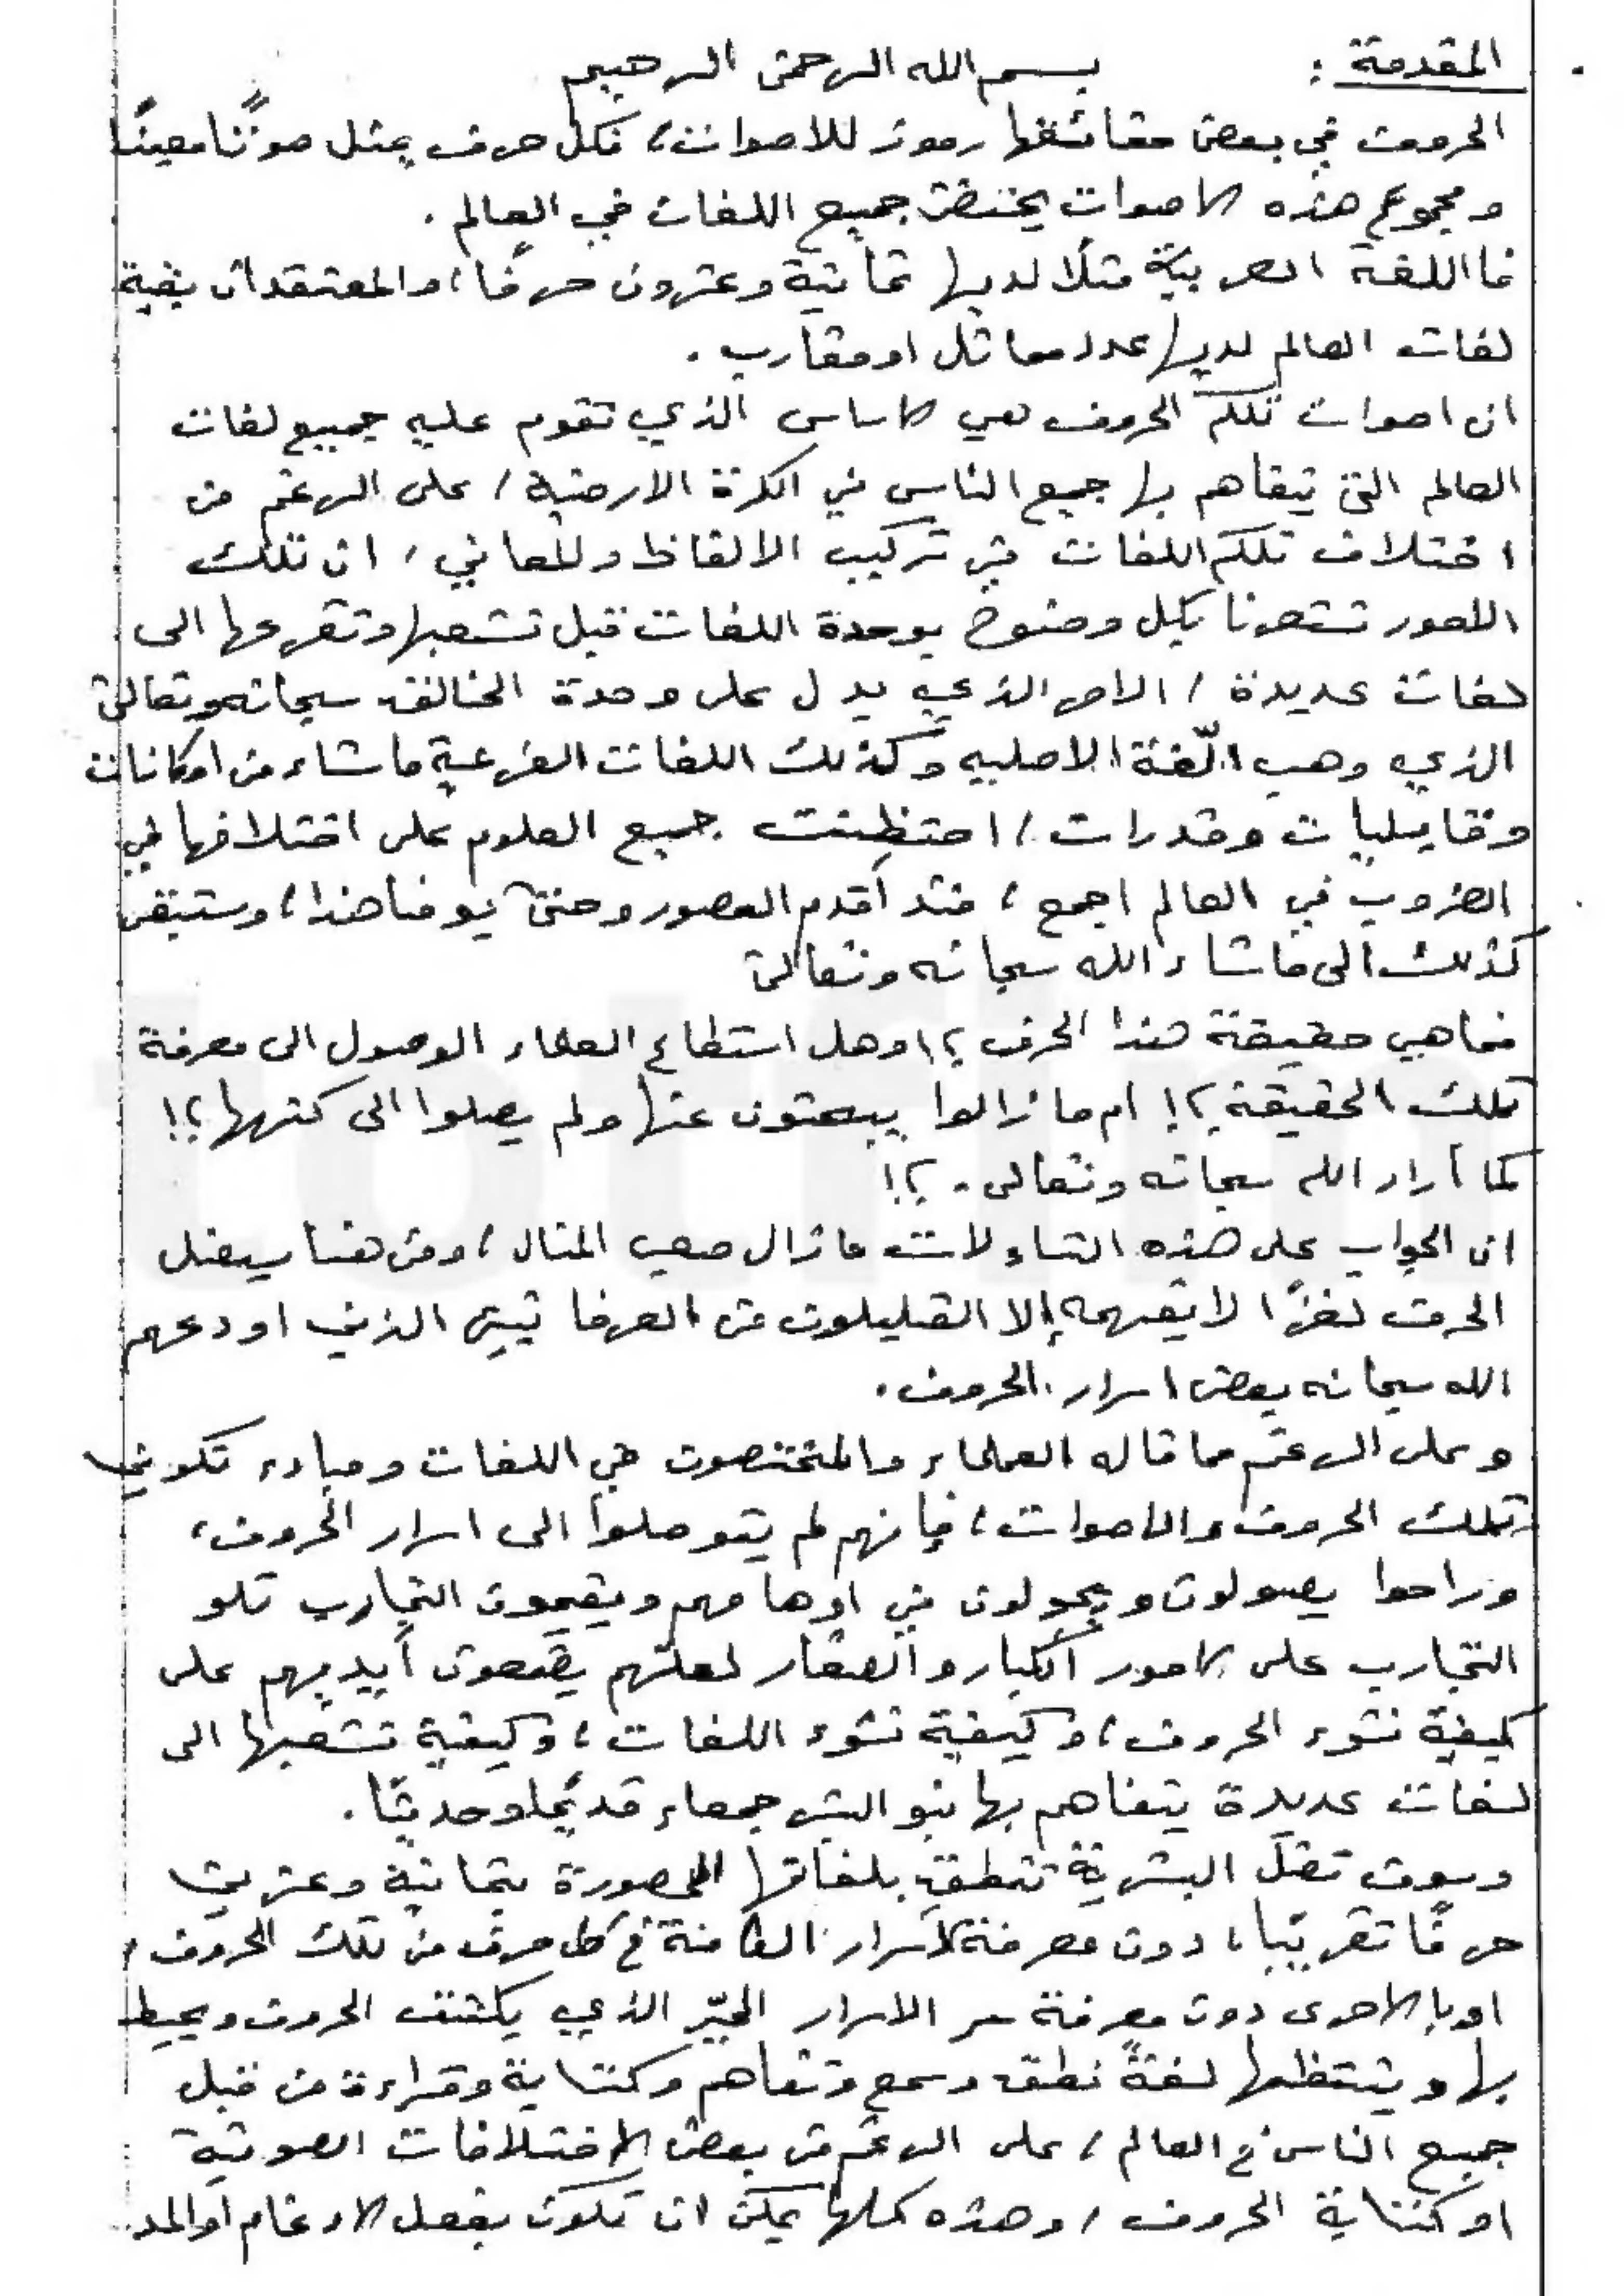 المقدمة : بسم الله الرحمن الرحيم
الحروف في بعض حقائقها رموز للاصوات، فكل حرف يمثل صوتًا معينًا
ومجموع هذه الاصوات يحتضن جميع اللغات في العالم .
فااللغة العربية مثلًا لديها ثمانية وعشرون حرفًا، والمعتقد ان بقية
لغات العالم لديها عدد مماثل او مقارب .
ان اصوات تلكم الحروف هي الاساس الذي تقوم عليه جميع لغات
العالم التي يتفاهم بها جميع الناس في الكرة الارضية، على الرغم من
اختلاف تلكم اللغات في تركيب الالفاظ والمعاني، ان تلك
الامور تشعرنا بكل وضوح بوحدة اللغات قبل تشعبها وتفرعها الى
لغات عديدة، الامر الذي يدل على وحدة الخالق سبحانه وتعالى
الذي وهب اللّغة الاصلية وكذلك اللغات الفرعية ما شاء من امكانات
وقابليات وقدرات، احتظنت جميع العلوم على اختلافها في
الضروب في العالم اجمع، منذ أقدم العصور وحتى يومنا هذا، وستبقى
كذلك الى ما شاء الله سبحانه وتعالى
فما هي حقيقة هذا الحرف ؟! وهل استطاع العلماء الوصول الى معرفة
تلك الحقيقة ؟! ام ما زالوا يبحثون عنها ولم يصلوا الى كنهها ؟!
كما أراد الله سبحانه وتعالى . ؟!
ان الجواب على هذه التساولات ما زال صعب المنال، ومن هنا سيضل
الحرف لغزًا لا يفهمه إلا القليلون من العرفانيين الذين اودعهم
الله سبحانه بعض اسرار الحروف .
وعلى الرغم مما قاله العلماء والمختصون في اللغات ومبادء تكوين
تلك الحروف والاصوات، فإنهم لم يتوصلوا الى اسرار الحروف،
وراحوا يصولون ويجولون في اوهامهم ويقيمون التجارب تلو
التجارب على الامور الكبار والصغار لعلهم يضعون أيديهم على
كيفية نشوء الحروف، وكيفية نشوء اللغات، وكيفية تشعبها الى
لغات عديدة يتفاهم بها بنو البشر جمعاء قديمًا وحديثًا .
وسوف تضل البشرية تنطق بلغاتها المحصورة بثمانية وعشرين
حرفًا تقريبًا، دون معرفة الاسرار الكامنة في كل حرف من تلك الحروف،
او بالاحرى دون معرفة سر الاسرار الخيّر الذي يكتنف الحروف ويحيط
بها وينتظمها لغةً نطق وسمع وتفاهم وكتابة وقراءة من قبل
جميع الناس في العالم، على الرغم من بعض الاختلافات الصوتية
او كتابة الحروف، وهذه كلها يمكن ان تكون بفعل الادغام او المد